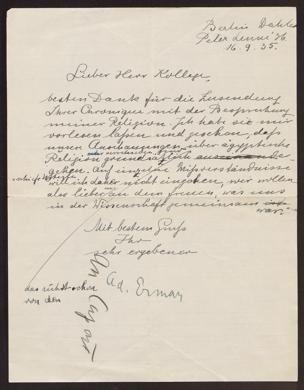 Berlin Dahlem
Peter Lenné 36
16.9.35.
Lieber Herr Kollege,
besten Dank für die Zusendung
Ihrer Chronique mit der Besprechung
meiner Religion. Ich habe sie mir
vorlesen lassen und gesehen, daß
unsere Anschauungen über ägyptische
Religion grundsätzlich
gehen. Auf einzelne Missverständnisse
will ich daher nicht eingehen, wir wollen
uns lieber an dem freuen, was uns
in der Wissenschaft gemeinsam war.
Mit bestem Gruß
Ihr
sehr ergebener
Ad. Erman
An Capart
von den